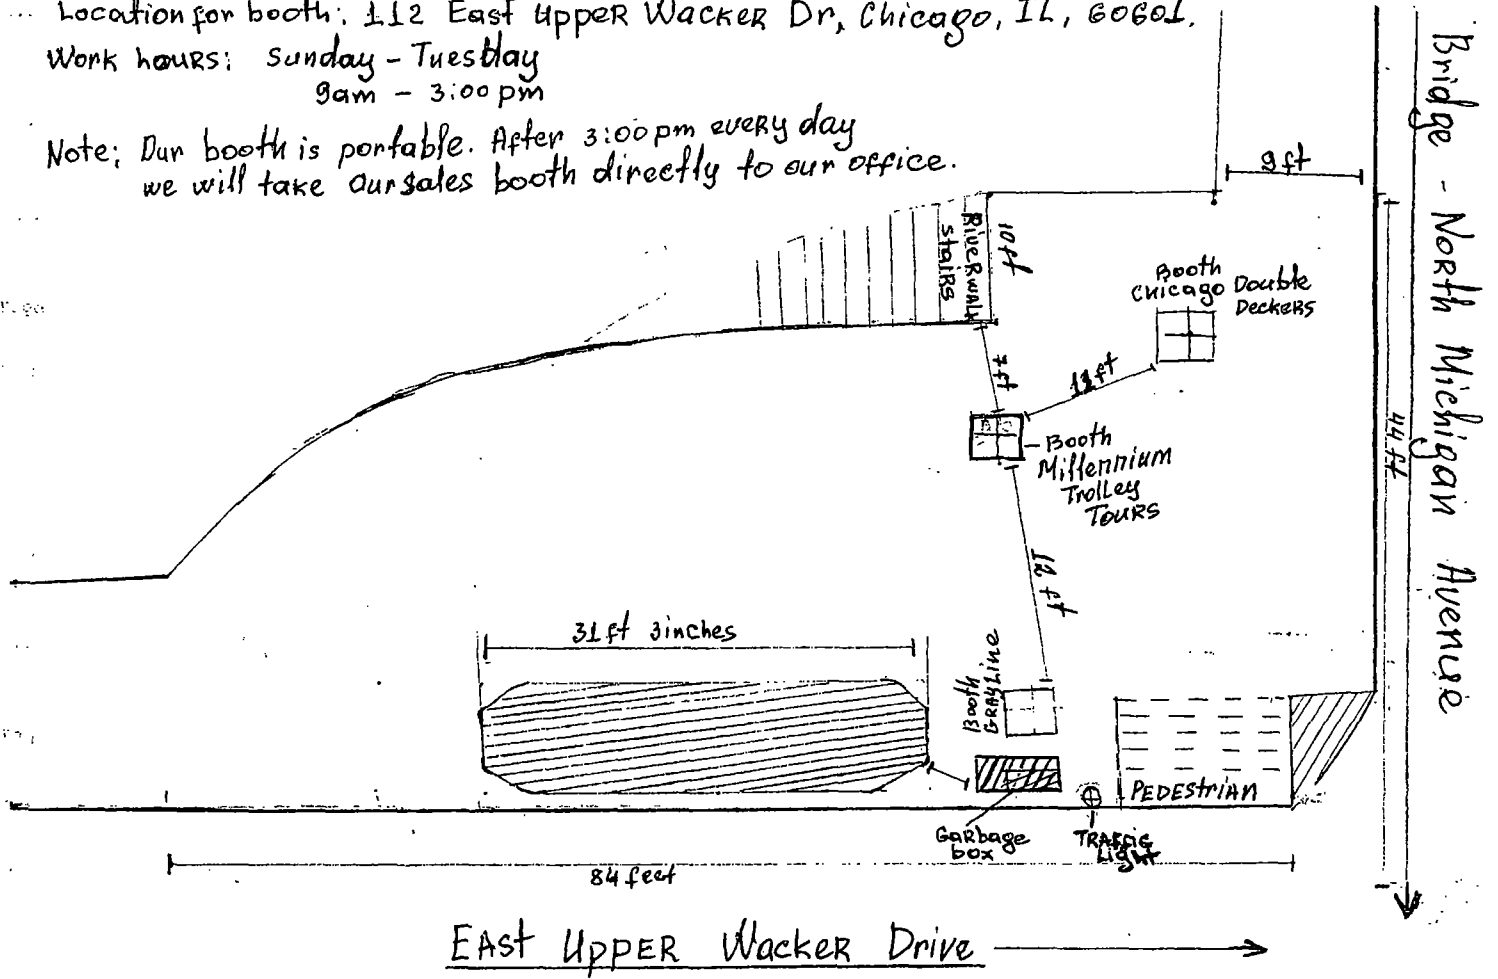 Location for booth: 112 East Upper Wacker Dr, Chicago, IL, 60601.
Work hours: Sunday - Tuesday
9am - 3:00 pm
Note: Our booth is portable. After 3:00 pm every day
we will take our sales booth directly to our office.
Bridge - North Michigan Avenue
9 ft
Riverwalk
stairs
10 ft
Booth
Chicago Double
Deckers
7 ft
11 ft
44 ft
Booth
Millennium
Trolley
Tours
12 ft
31 ft 3 inches
Booth
GRAYLine
PEDEStriAN
Garbage
box
TRAFFic
Light
84 feet
EASt UPPER WackeR Drive